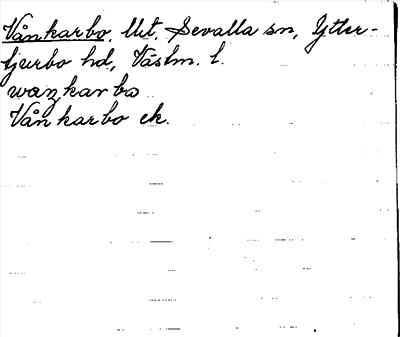 Vånkarbo, Mt, Sevalla sn, Ytter-
tjurbo hd, Västm. l.
wankarbo
Vånkarbo ek.